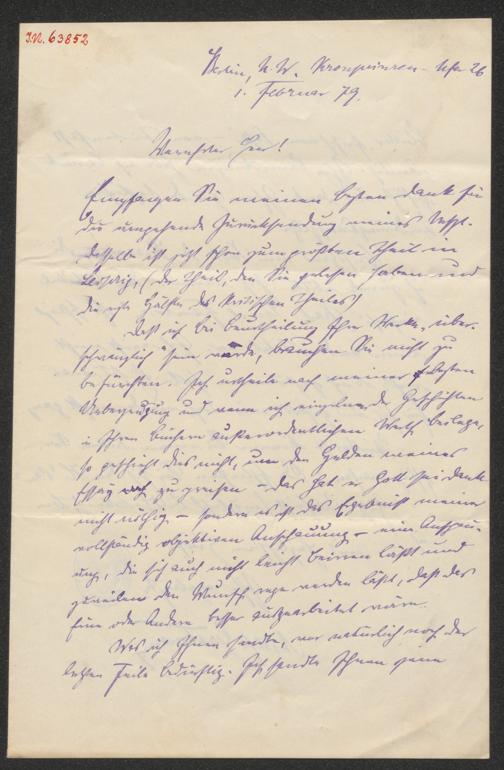 I.N. 63852
Berlin, N.W. Kronprinzen-Ufer 26
1. Februar 79.
Verehrter Herr!
Empfangen Sie meinen besten Dank für
die umgehende Zurücksendung meines
dasselbe ist jetzt schon zum größten Theil in
Leipzig, (der Theil, den Sie gelesen haben und
die erste Hälfte des kritischen Theiles)
Daß ich bei Beurtheilung Ihrer Werke „über-
schwänglich“ sein werde, brauchen Sie nicht zu
befürchten. Ich urtheile nach meiner besten
Ueberzeugung und wenn ich einzelnen Geschichten
in Ihren Büchern außerordentlichen Werth beilege,
so geschieht dies nicht, um den Helden meines
Essay zu preisen – das hat er Gott sei Dank
nicht nöthig – sondern es ist das Ergebniß meiner
vollständig objektiven Anschauung – eine Anschau-
ung, die sich auch nicht leicht beirren läßt und
zuweilen den Wunsch rege werden läßt, daß das
Eine oder Andere besser ausgearbeitet wäre.
Was ich Ihnen sandte, war natürlich noch der
letzten Feile bedürftig. Ich sandte Ihnen jene